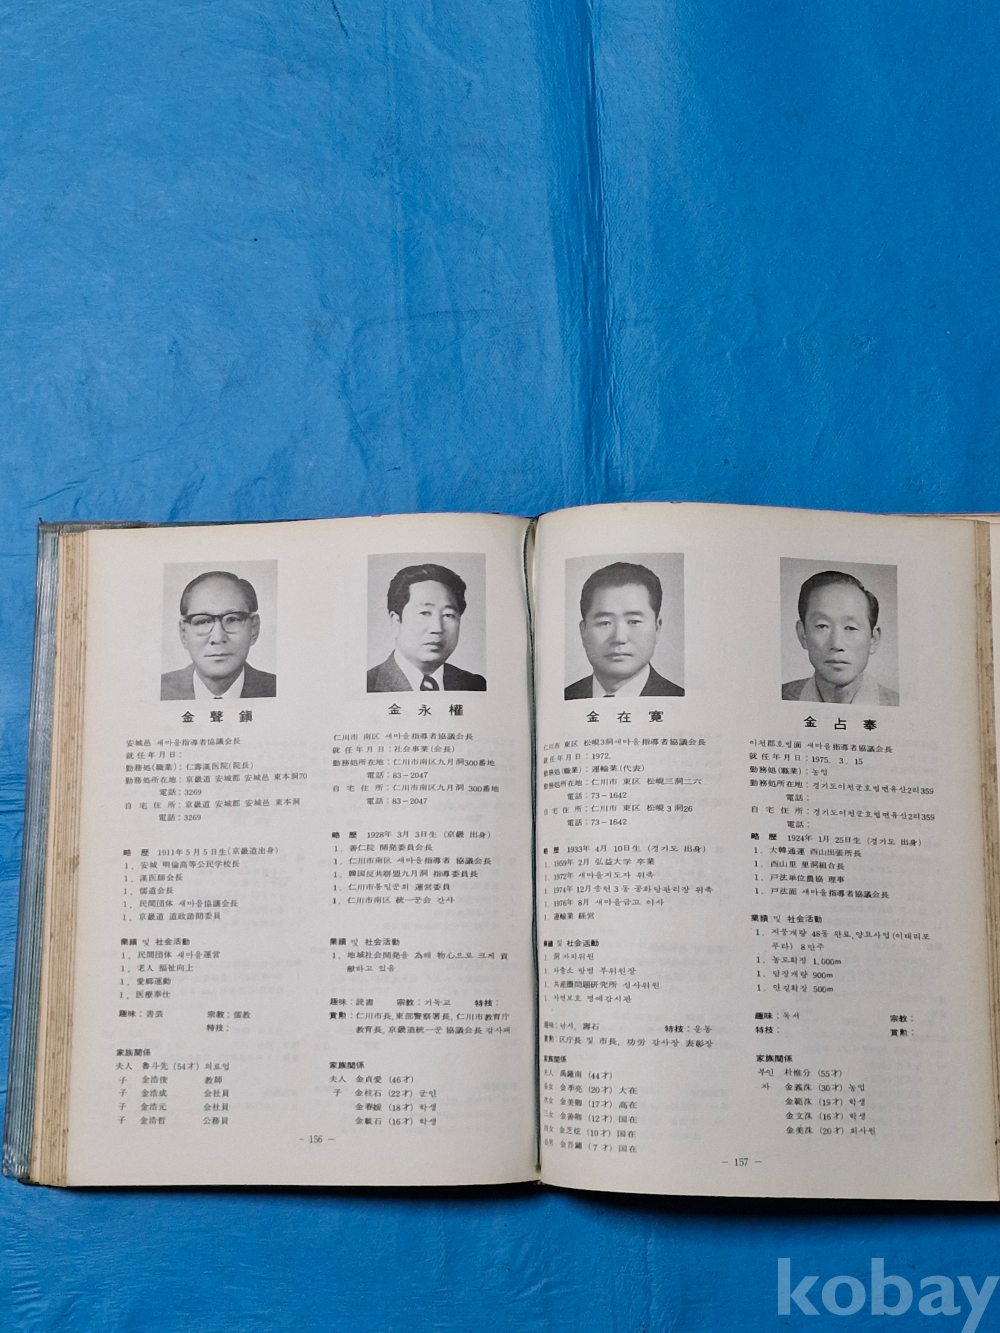 金聲鎭
安城邑 새마을指導者協議会長
就任年月日:
勤務処(職業): 仁壽漢医院(院長)
勤務処所在地: 京畿道 安城郡 安城邑 東本洞70
電話: 3269
自宅住所: 京畿道 安城郡 安城邑 東本洞
電話: 3269
略歴 1911年5月5日生(京畿道出身)
1. 安城 明倫高等公民学校長
1. 漢医師会長
1. 儒道会長
1. 民間団体 새마을協議会長
1. 京畿道 道政諮問委員
業績 및 社会活動
1. 民間団体 새마을運営
1. 老人 福祉向上
1. 愛郷運動
1. 医療奉仕
趣味: 書芸 宗教: 儒教
特技:
家族関係
夫人 魯斗先 (54才) 의료업
子 金浩俊 教師
子 金浩成 会社員
子 金浩元 会社員
子 金浩哲 公務員
- 156 -
金永權
仁川市 南区 새마을指導者協議会長
就任年月日: 社会事業(会長)
勤務処所在地: 仁川市南区九月洞300番地
電話: 83-2047
自宅住所: 仁川市南区九月洞 300番地
電話: 83-2047
略歴 1928年 3月 3日生 (京畿 出身)
1. 善仁院 開発委員会長
1. 仁川市南区 새마을指導者 協議会長
1. 韓国反共联盟九月洞 指導委員長
1. 仁川市통일꾼회 運営委員
1. 仁川市南区 統一꾼会 간사
業績 및 社会活動
1. 地域社会開発을 為해 物心으로 크게 貢
献하고 있음
趣味: 読書 宗教: 기독교 特技:
賞勲: 仁川市長, 東部警察署長, 仁川市教育庁
教育長, 京畿道統一꾼 協議会長 감사패
家族関係
夫人 金貞愛 (46才)
子 金柱石 (22才) 군인
金春媛 (18才) 학생
金載石 (16才) 학생
金在寛
仁川市 東区 松峴3洞새마을指導者協議会長
就任年月日: 1972.
勤務処(職業): 運輸業(代表)
勤務処所在地: 仁川市 東区 松峴三洞二六
電話: 73-1642
自宅住所: 仁川市 東区 松峴3洞26
電話: 73-1642
略歴 1933年 4月 10日生 (京畿도 出身)
1. 1959年 2月 弘益大学 卒業
1. 1972年 새마을지도자 위촉
1. 1974年 12月 송현3동 공화당관리장 위촉
1. 1976年 8月 새마을금고 이사
1. 運輸業 経営
業績 및 社会活動
1. 洞 자치위원
1. 파출소 방범 부위원장
1. 共産圏問題研究所 심사위원
1. 자연보호 명예감시관
趣味: 낚시, 壽石 特技: 운동
賞勲: 区庁長 및 市長, 功労 감사장 表彰장
家族関係
夫人 禹鍾南 (44才)
長女 金季亮 (20才) 大在
次女 金美卿 (17才) 高在
三女 金善卿 (12才) 国在
四女 金芝炫 (10才) 国在
長男 金晋鏞 (7才) 国在
- 157 -
金占奉
이천郡호법面 새마을指導者協議会長
就任年月日: 1975. 3. 15
勤務処(職業): 농업
勤務処所在地: 경기도이천군호법면유산2리359
電話:
自宅住所: 경기도이천군호법면유산2리359
電話:
略歴 1924年 1月 25日生 (경기도 出身)
1. 大韓通運 西山出張所長
1. 西山里 里洞組合長
1. 戸法単位農協 理事
1. 戸法面 새마을指導者協議会長
業績 및 社会活動
1. 지붕개량 48동 완료, 양묘사업(이태리포
푸라) 8만주
1. 농로확장 1,000m
1. 담장개량 900m
1. 안길확장 500m
趣味: 독서 宗教:
特技: 賞勲:
家族関係
부인 朴惟分 (55才)
자 金義洙 (30才) 농업
金範洙 (19才) 학생
金文洙 (16才) 학생
金美洙 (26才) 회사원
kobay